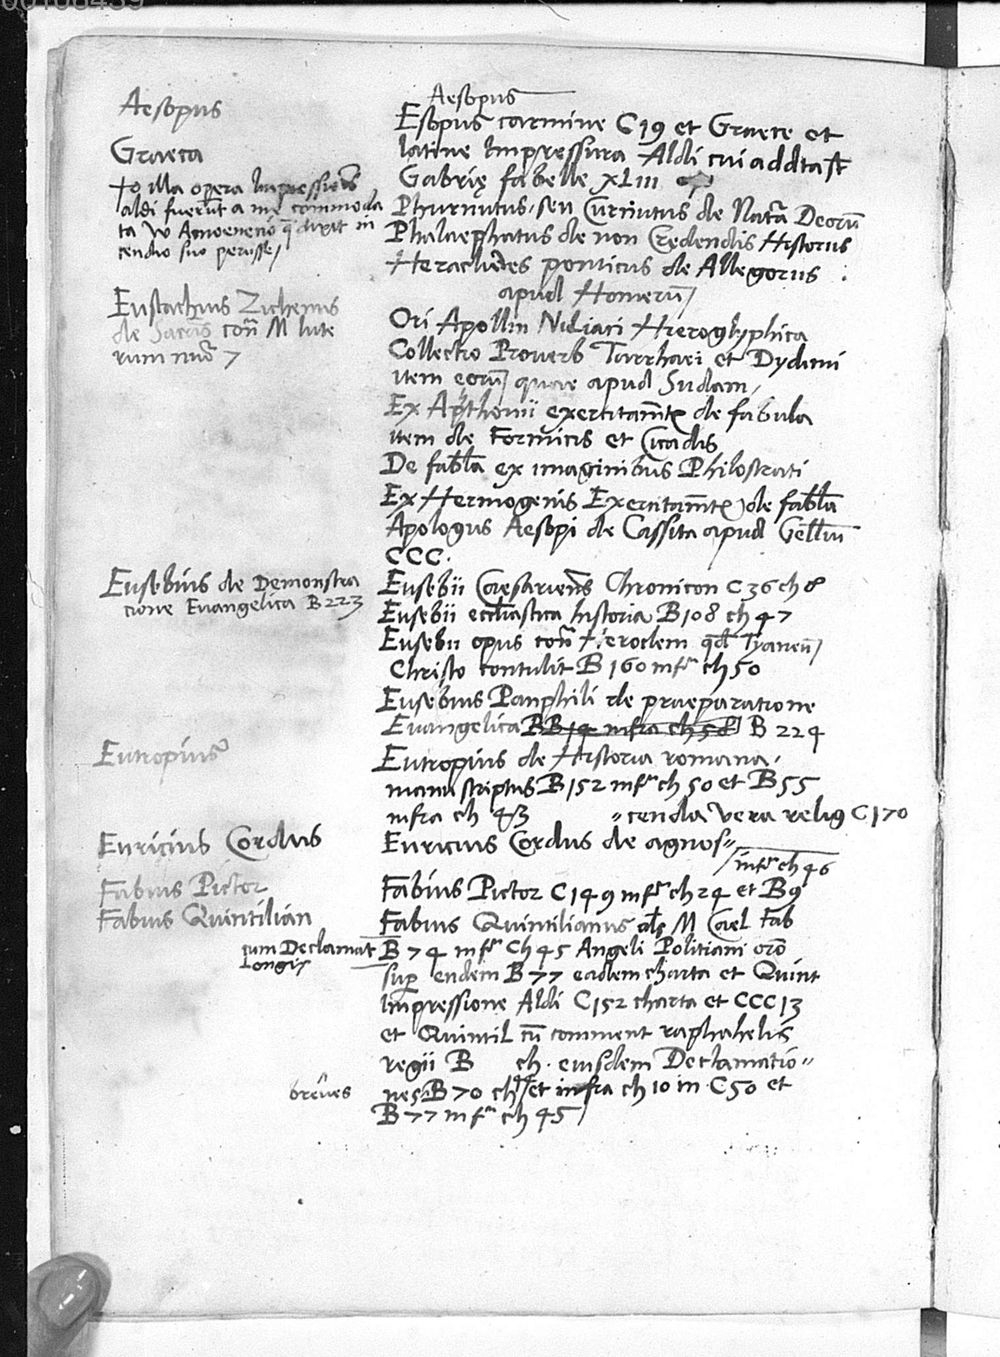 00108439
Aesopus
Graeca
to illa opera Impressionis
aldi fuerūt a me commoda
ta W Amoeneno q̄ dixit in
cendio suo perusse/
Eustachius Zichenius
de Sacris con̄ M lute
rum nuō 7
Eusebius de Demonstra
tione Euangelica B 223
Eutropius
Euricius Cordus
Fabius Pictor
Fabius Quintilian
cum Declamat
Longis
breues
Aesopus
Esopus carmine C 19 et Graece et
latine Impressura Aldi cui addita st
Gabrię fabelle XLIII
Phurnutus seu Curnutus de Natā Deorū
Phalaephatus de non Credendis Historiis
Heraclides ponticus de Allegoriis
apud Homerū/
Ori Apollin Niliaci Hieroglyphica
Collectio Proverb Tarrhaei et Dydimi
item eorū quae apud Sudam/
Ex Apthonii exercitam̄t de fabula
item de Formicis et Cicadis
De fab̄la ex imaginibus Philostrati
Ex Hermogenis Exercitam̄t de fab̄la
Apologus Aesopi de Cassita apud Gelliū
CCC.
Eusebii Caesariens̄ Chronicon C 36 ch 8
Eusebii eccliastica historia B 108 ch 47
Eusebii opus con̄ Hieroclem qd Tyaneū/
Christo contulit B 160 infr ch 50
Eusebius Panphili de praeparatione
Euangelica B B 14 infra ch 58 B 224
Eutropius de Historia romana
manu scriptus B 152 infr ch 50 et B 55
infra ch 43 〃cenda vera relig C 170
Euricius Cordus de agnos〃
/infr ch 46
Fabius Pictor C 149 infr ch 24 et B 9
Fabius Quintilianus als M Cael Fab
B 74 infr Ch 45 Angeli Politiani orō
sup endem B 77 eadem charta et Quint
Impressione Aldi C 152 charta et CCC 13
et Quintil cū comment raphahelis
regii B ch. eiusdem Declamatio〃
nes B 70 ch et infra ch 10 in C 50 et
B 77 infr ch 45/